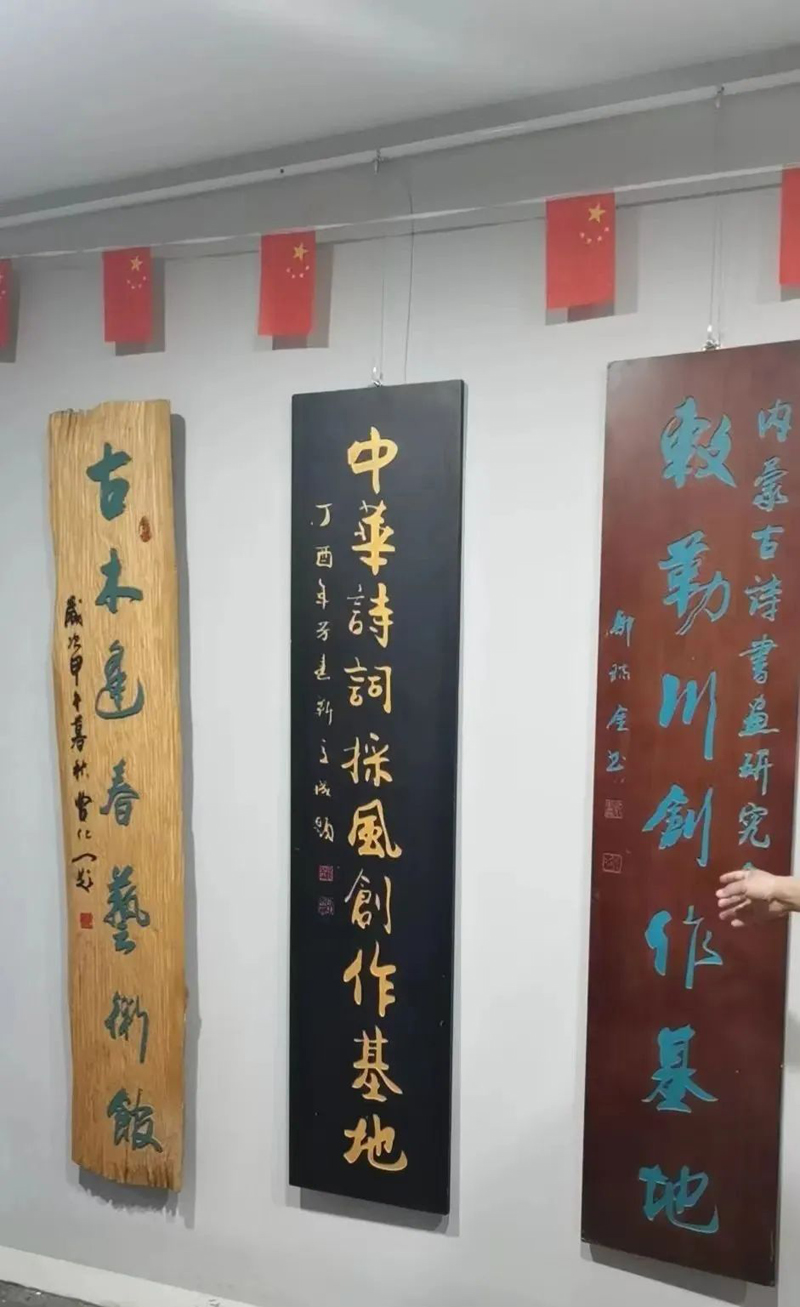 古木逢春藝術館
歲次甲午暮秋曹仁題
中華詩詞採風創作基地
丁酉年
内蒙古诗書画研究
敕勒川創作基地